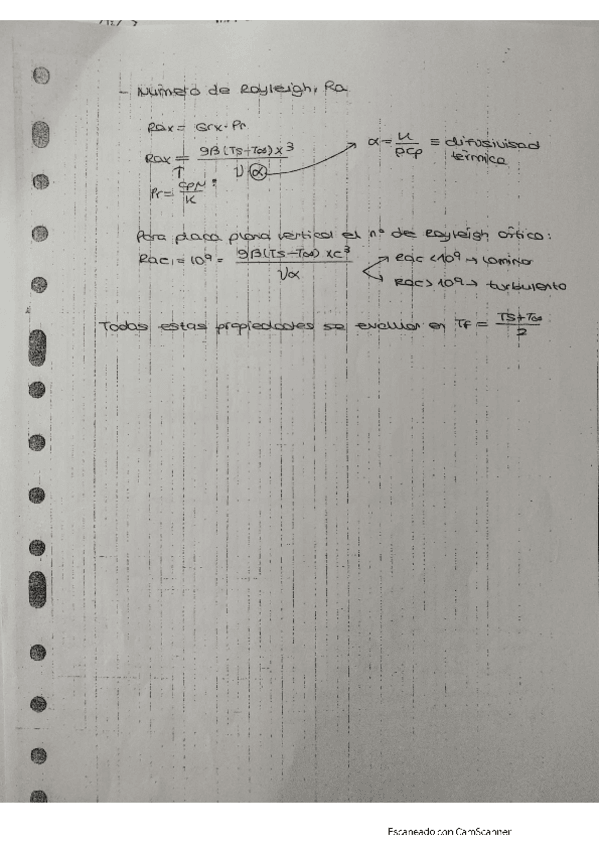 - Número de Rayleigh, Ra
Rax = Grx·Pr
Rax = gβ(Ts-T∞)x³ / να → α = k/ρcp ≡ difusividad térmica
Pr = cpμ/k
Para placa plana vertical el nº de Rayleigh crítico:
Rac, = 10⁹ = gβ(Ts-T∞)xc³ / να
Rac < 10⁹ → laminar
Rac > 10⁹ → turbulento
Todas estas propiedades se evaluan en Tf = Ts+T∞ / 2
Escaneado con CamScanner